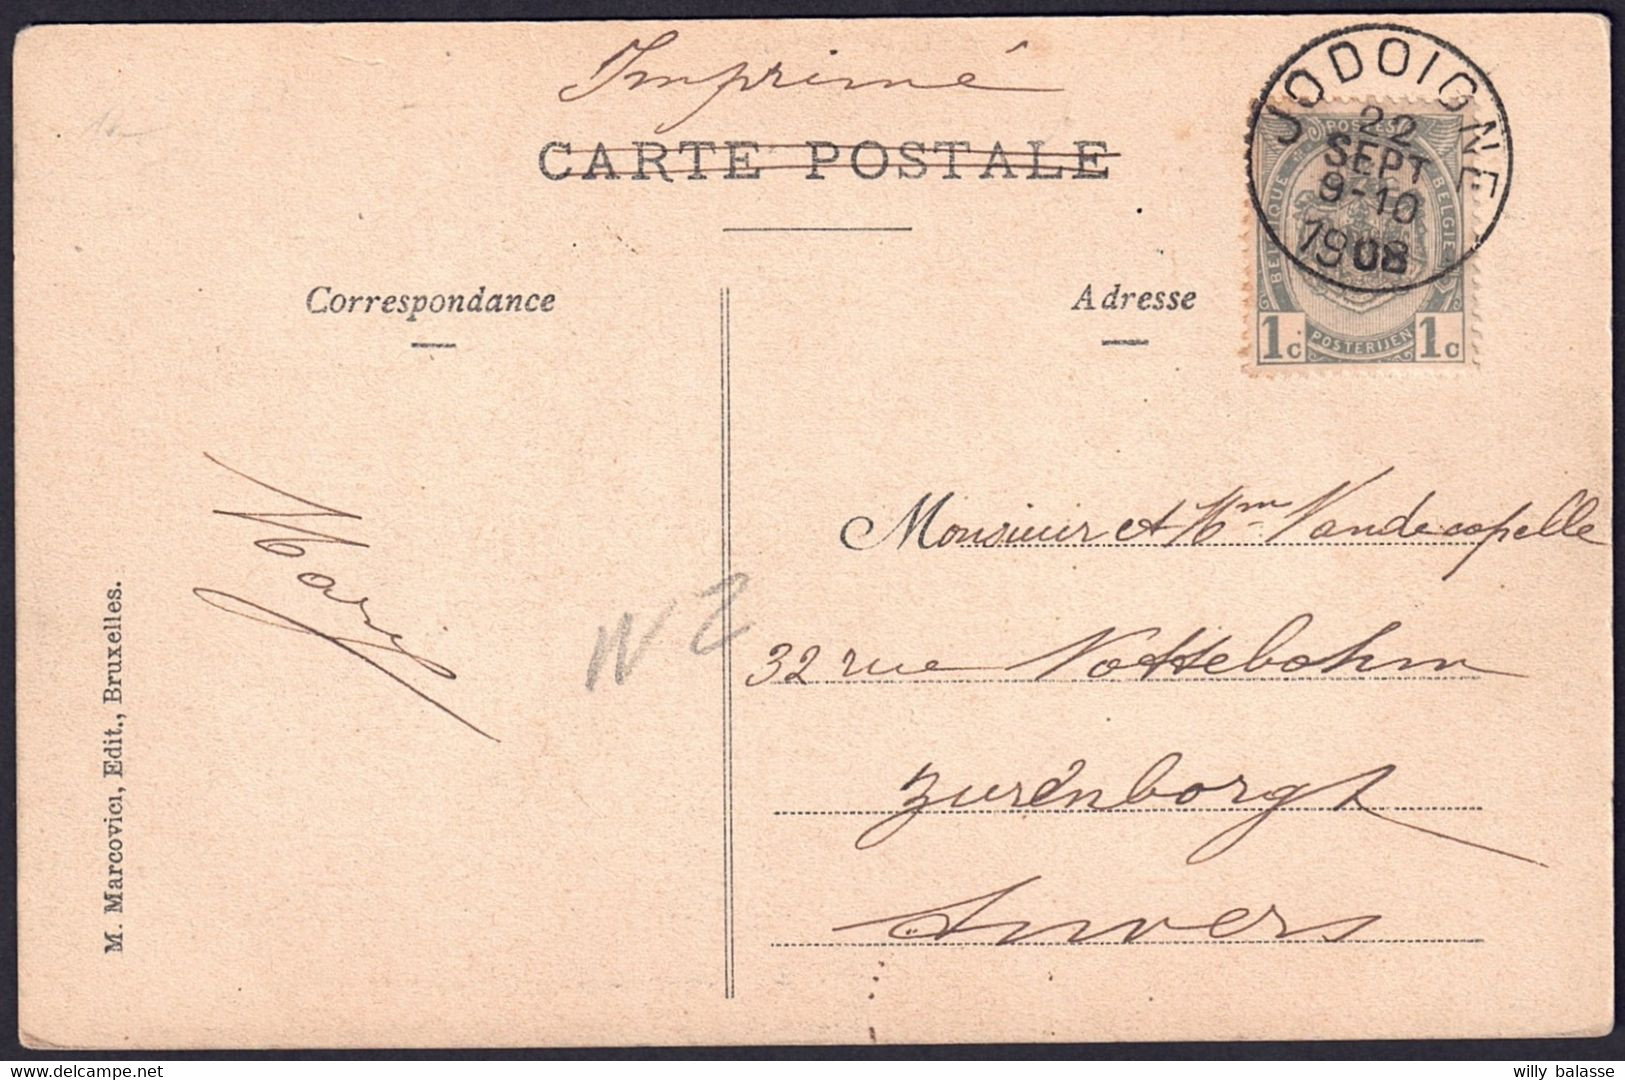 Imprimé
CARTE POSTALE
JODOIGNE
22
SEPT
9-10
1908
POSTES
BELGIQUE
BELGIE
1c
POSTERIJEN
1c
Correspondance
Adresse
Monsieur et Mme Vandecapelle
32 rue Nottebohm
Zurenborgh
Anvers
Mary
NZ
M. Marcovici, Edit., Bruxelles.
delcampe.net
willy balasse